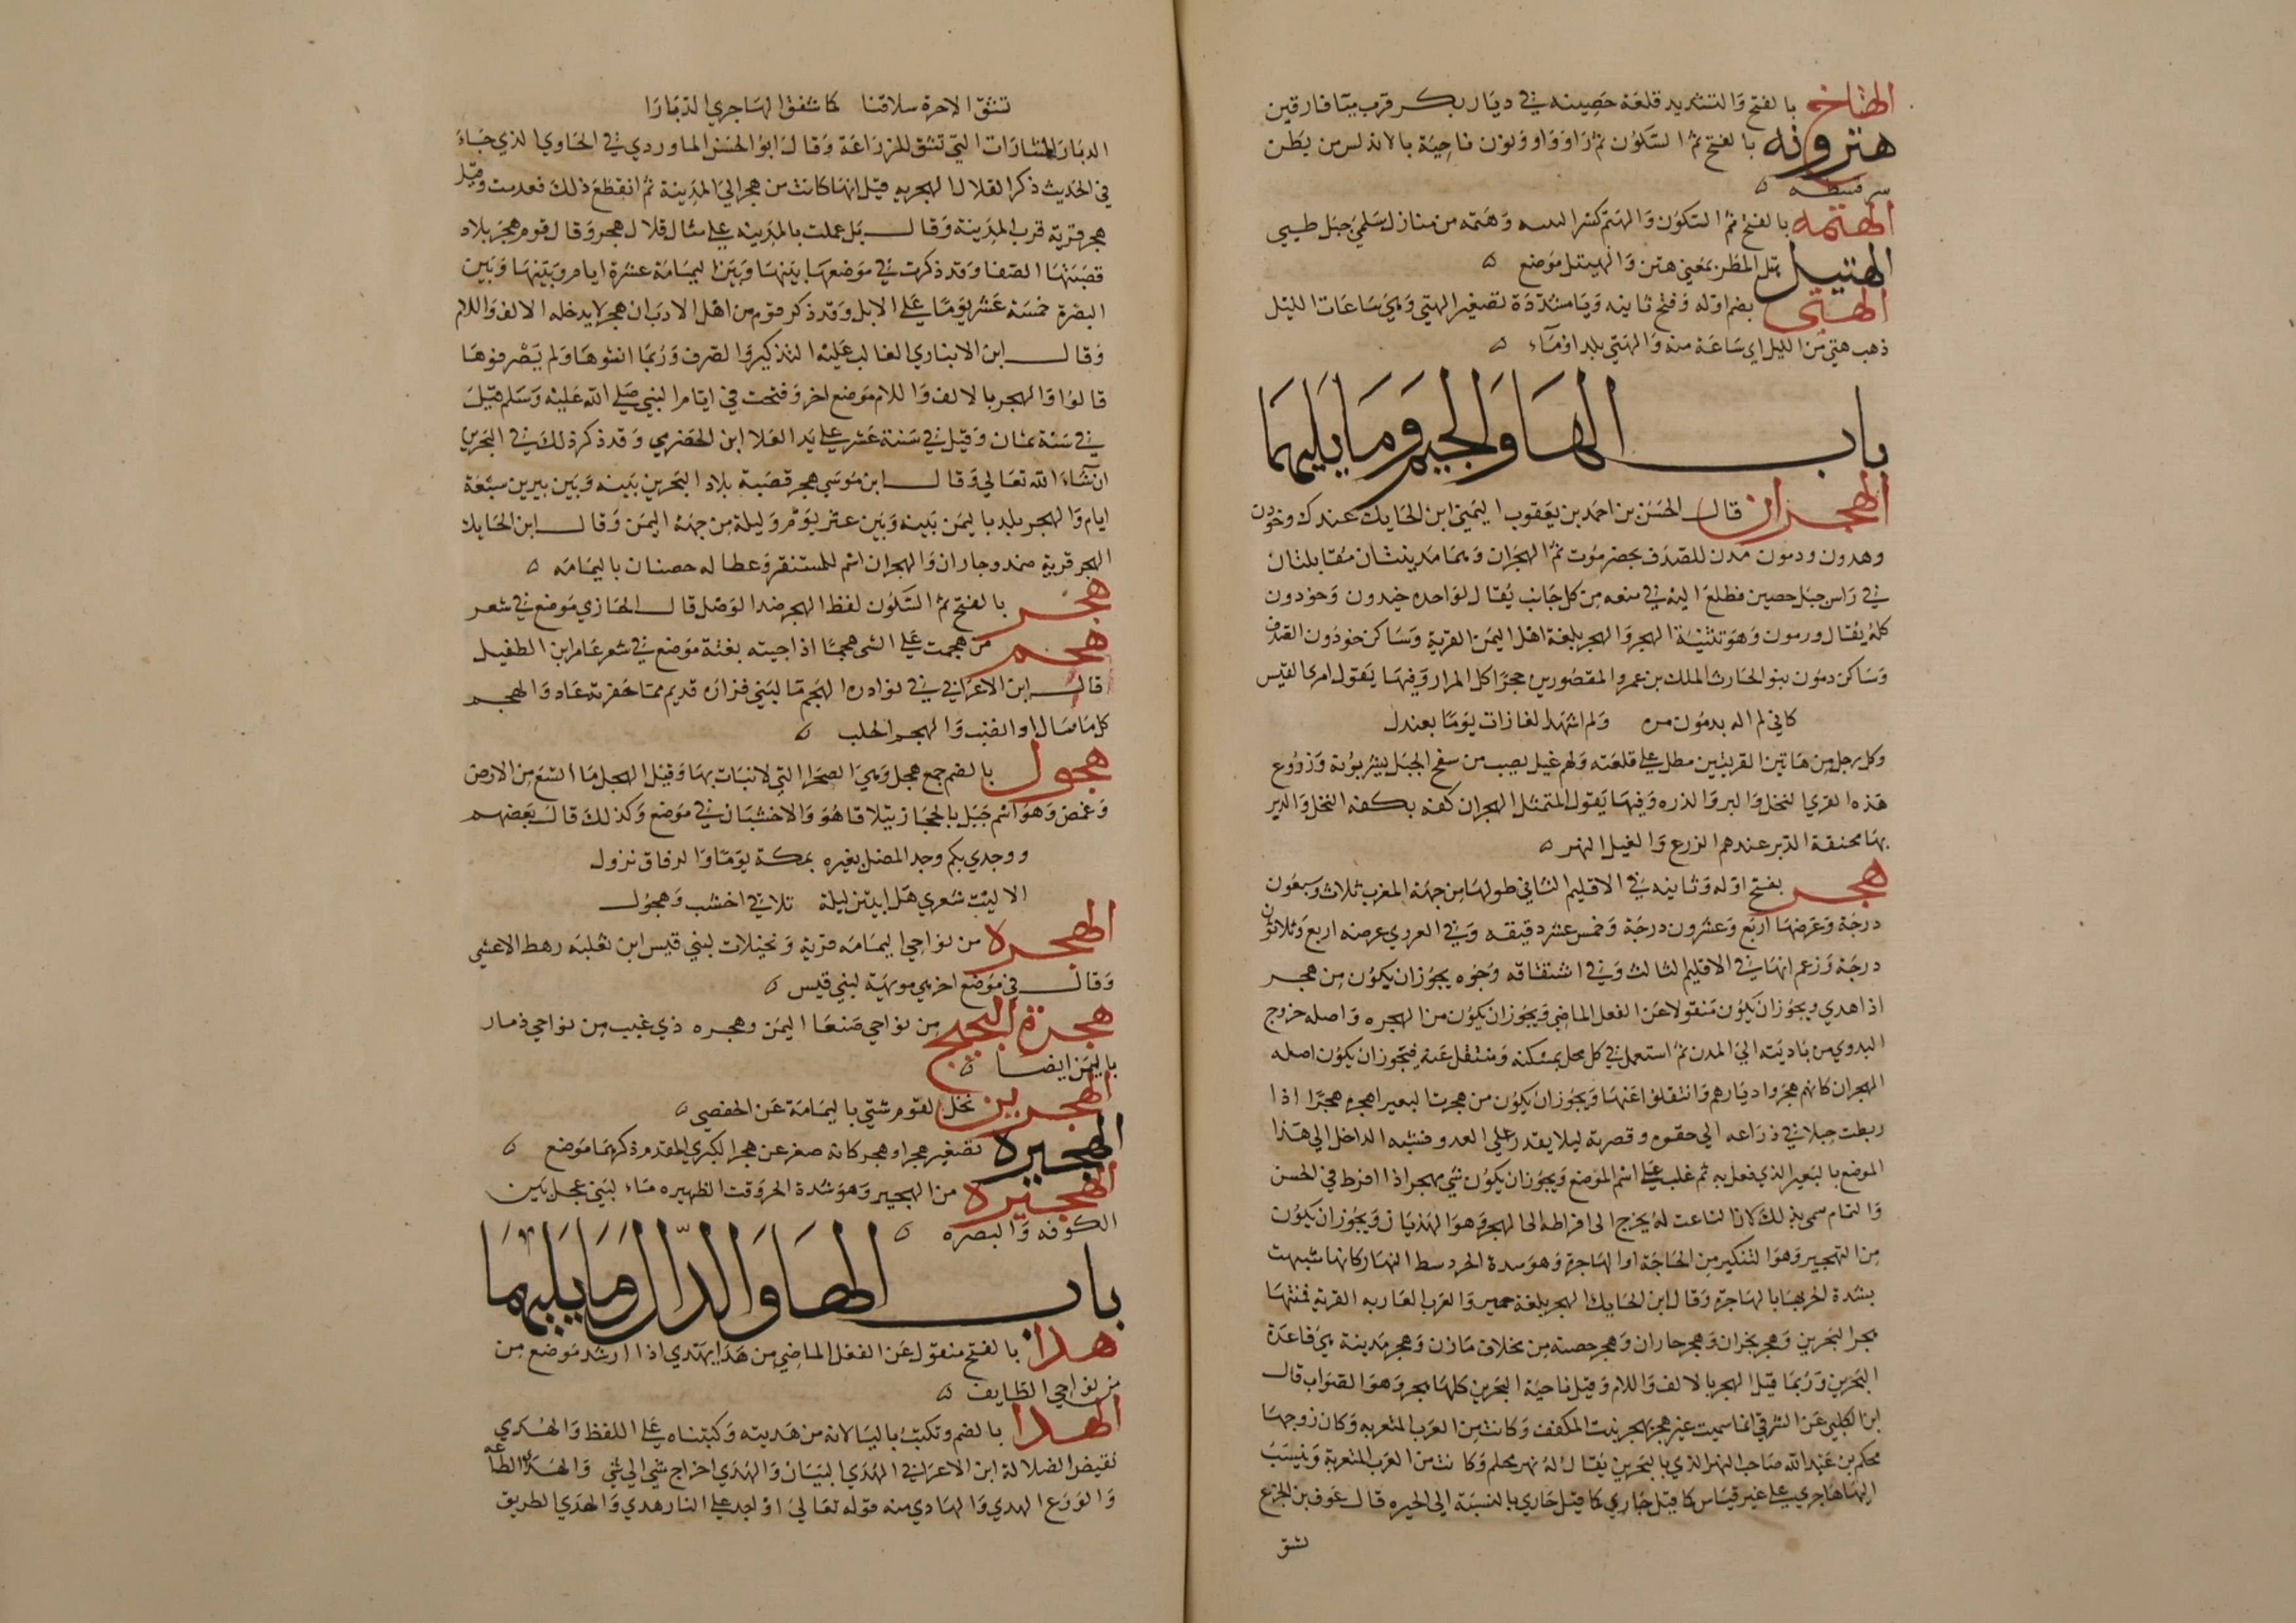 الهتاخ بالفتح والتشديد قلعة حصينه في ديار بكر قرب ميافارقين
هترونه بالفتح ثم السكون ثم راو واو ونون ناحية بالاندلس من بطن
سرقسطه ه
الهتمه بالفتح ثم السكون والهتم كسر وهتمه من منازل سلمى جبل طيي
الهتيل هتل المطر بمعني هتن والهيتل موضع ه
الهتي بضم اوله وفتح ثانيه ويا مشددة تصغير الهتي وهي ساعات الليل
ذهب هتي من الليل اي ساعة منه والهتي بلد او ماء ه
باب الها والجيم وما يليهما
الهجران قال الحسن بن احمد بن يعقوب اليمني ابن الحايك عندك وخودن
وهدون ودمون مدن للصدف بحضرموت ثم الهجران وهما مدينتان متقابلتان
في راس جبل حصين فطلع اليه في منعه من كل جانب يقال لواحده خيدون وخودون
كله يقال ورمون وهو تثنية الهجر والهجر بلغة اهل اليمن القرية وساكن خودون الصدف
وساكن دمون بنو الحارث الملك بن عمرو المقصور بن حجر اكل المرار وفيها يقول امرى القيس
كاني لم اله بدمون مره ولم اشهد الغارات يوما بعندل
وكل رجل من هاتين القريتين مطل علي قلعته ولهم غيل يصب من سفح الجبل يشربونه وزروع
هذه القري النخل والبر والذره وفيها يقول المتمثل الهجران كفه بكفه النخل والدبر
بها محنقة الدبر عندهم الزرع والغيل النهر ه
هجر بفتح اوله وثانيه في الاقليم الثاني طولها من جهة المغرب ثلاث وسبعون
درجة وعرضها اربع وعشرون درجة وخمس عشر دقيقه وفي العزيزي عرضه اربع وثلاثون
درجة وزعم انها في الاقليم الثالث وفي اشتقاقه وجوه يجوز ان يكون من هجر
اذا هدي ويجوز ان يكون منقولا عن الفعل الماضي ويجوز ان يكون من الهجره واصله خروج
البدوي من باديته الي المدن ثم استعمل في كل محل بمسكنه ومنتقل عنه فيجوز ان يكون اصله
الهجران كانهم هجروا ديارهم وانتقلوا عنها ويجوز ان يكون من هجرت البعير اهجره هجرا اذا
ربطت حبلا في ذراعه الي حقوه وقصرته ليلا يقدر علي العدو فشبه الداخل الي هذا
الموضع بالبعير الذي فعل به ثم غلب علي اسم الموضع ويجوز ان يكون شي مهجر اذا افرط في الحسن
والتمام سمي بذلك لان الناعت له يخرج الى افراطه الى الهجر وهو الهذيان ويجوز ان يكون
من التهجير وهو التبكير من الحاجة او الهاجرة وهو شدة الحر وسط النهار كانها شبهت
بشدة الحر بها بالهاجرة وقال ابن الحايك الهجر بلغة حمير والعرب العاربه القرية فمنها
هجر البحرين وهجر نجران وهجر جاران وهجر حصنه من مخلاف مازن وهجر مدينة هي قاعدة
البحرين وربما قيل الهجر بالالف واللام وقيل ناحية البحرين كلها هجر وهو الصواب قال
ابن الكلبي عن الشرقي انما سميت عين هجر بهجر بنت المكفف وكانت من العرب المتعربه وكان زوجها
محكم بن عبد الله صاحب النهر الذي بالبحرين يقال له نهر محلم وكانت من العرب المتعربة وينسب
اليها هاجري علي غير قياس كما قيل حاري كما قيل حاري بالنسبة الى الحيره قال عوف بن الجزع
تشق
تشق الاحرة سلافنا كما شقق الهاجري الدبارا
الدبار المشارات التي تشق للمزراعة وقال ابو الحسن الماوردي في الحاوي الذي جاء
في الحديث ذكر القلال الهجريه قيل انها كانت من هجر الي المدينة ثم انقطع ذلك فعدمت وقيل
هجر قرية قرب المدينة وقال بل عملت بالمدينه علي مثال قلال هجر وقال قوم هجر بلاد
قصبتها الصفا وقد ذكرت في موضعها بينها وبين اليمامة عشرة ايام وبينها وبين
البصرة خمسة عشر يوما علي الابل وقد ذكر قوم من اهل الادب ان هجر لا يدخله الالف واللام
وقال ابن الانباري الغالب عليه التذكير والصرف وربما انثوها ولم يصرفوها
قالوا والهجر بالالف واللام موضع اخر وفتحت في ايام النبي صلي الله عليه وسلم قيل
في سنة ثمان وقيل في سنة عشر علي يد العلا ابن الحضرمي وقد ذكر ذلك في البحرين
ان شاء الله تعالي وقال ابن موسي هجر قصبة بلاد البحرين بينه وبين يبرين سبعة
ايام والهجر بلد باليمن بينه وبين عثر يوم وليلة من جهة اليمن وقال ابن الحايك
الهجر قرية صمد وجاران والهجران اسم للمشقر وعطاله حصنان باليمامه ه
هجر بالفتح ثم السكون لفظ الهجر ضد الوصل قال الحازي موضع في شعر
هجم من هجمت علي الشي هجما اذا جيته بغتة موضع في شعر عامر ابن الطفيل
قال ابن الاعرابي في نوادره الهجم ما لبني فزاره قديم مما حفرته عاد والهجم
كل ما سال او انصب والهجم الحلب ه
هجول بالضم جمع هجل وهي الصحرا التي لا نبات بها وقيل الهجل ما اتسع من الارض
وغمض وهو اسم جبل بالحجاز يتلاقا هو والاخشبان في موضع وكذلك قال بعضهم
ووجدي بكم وجد المضل بعيره بمكة يوما والرفاق نزول
الا ليت شعري هل ابيتن ليلة تلاقي اخشب وهجول
الهجره من نواحي اليمامه قرية ونخيلات لبني قيس ابن ثعلبه رهط الاعشي
وقال في موضع اخر هي مويهية لبني قيس ه
هجرة البحيح من نواحي صنعا اليمن وهجره ذي غبب من نواحي ذمار
باليمن ايضا ه
الهجرين نخل لقوم شتي باليمامة عن الحفصي ه
الهجيره تصغير هجر او هجر كانه صغر عن هجر الكبري المقدم ذكرهما موضع ه
الهجيره من الهجير وهو شدة الحر وقت الظهيره ماء لبني عجل بين
الكوفه والبصره ه
باب الها والدال وما يليهما
هدا بالفتح منقول عن الفعل الماضي من هدا يهتدي اذا ارشد موضع من
من نواحي الطايف ه
الهدا بالضم وتكتب باليا لانه من هديته وكتبناه علي اللفظ والهدي
نقيض الضلالة ابن الاعرابي الهدي البيان والهدي اخراج شي الي شي والهدي الطاعه
والورع الهدي والهادي منه قوله تعالي او اجد علي النار هدي والهدي الطريق